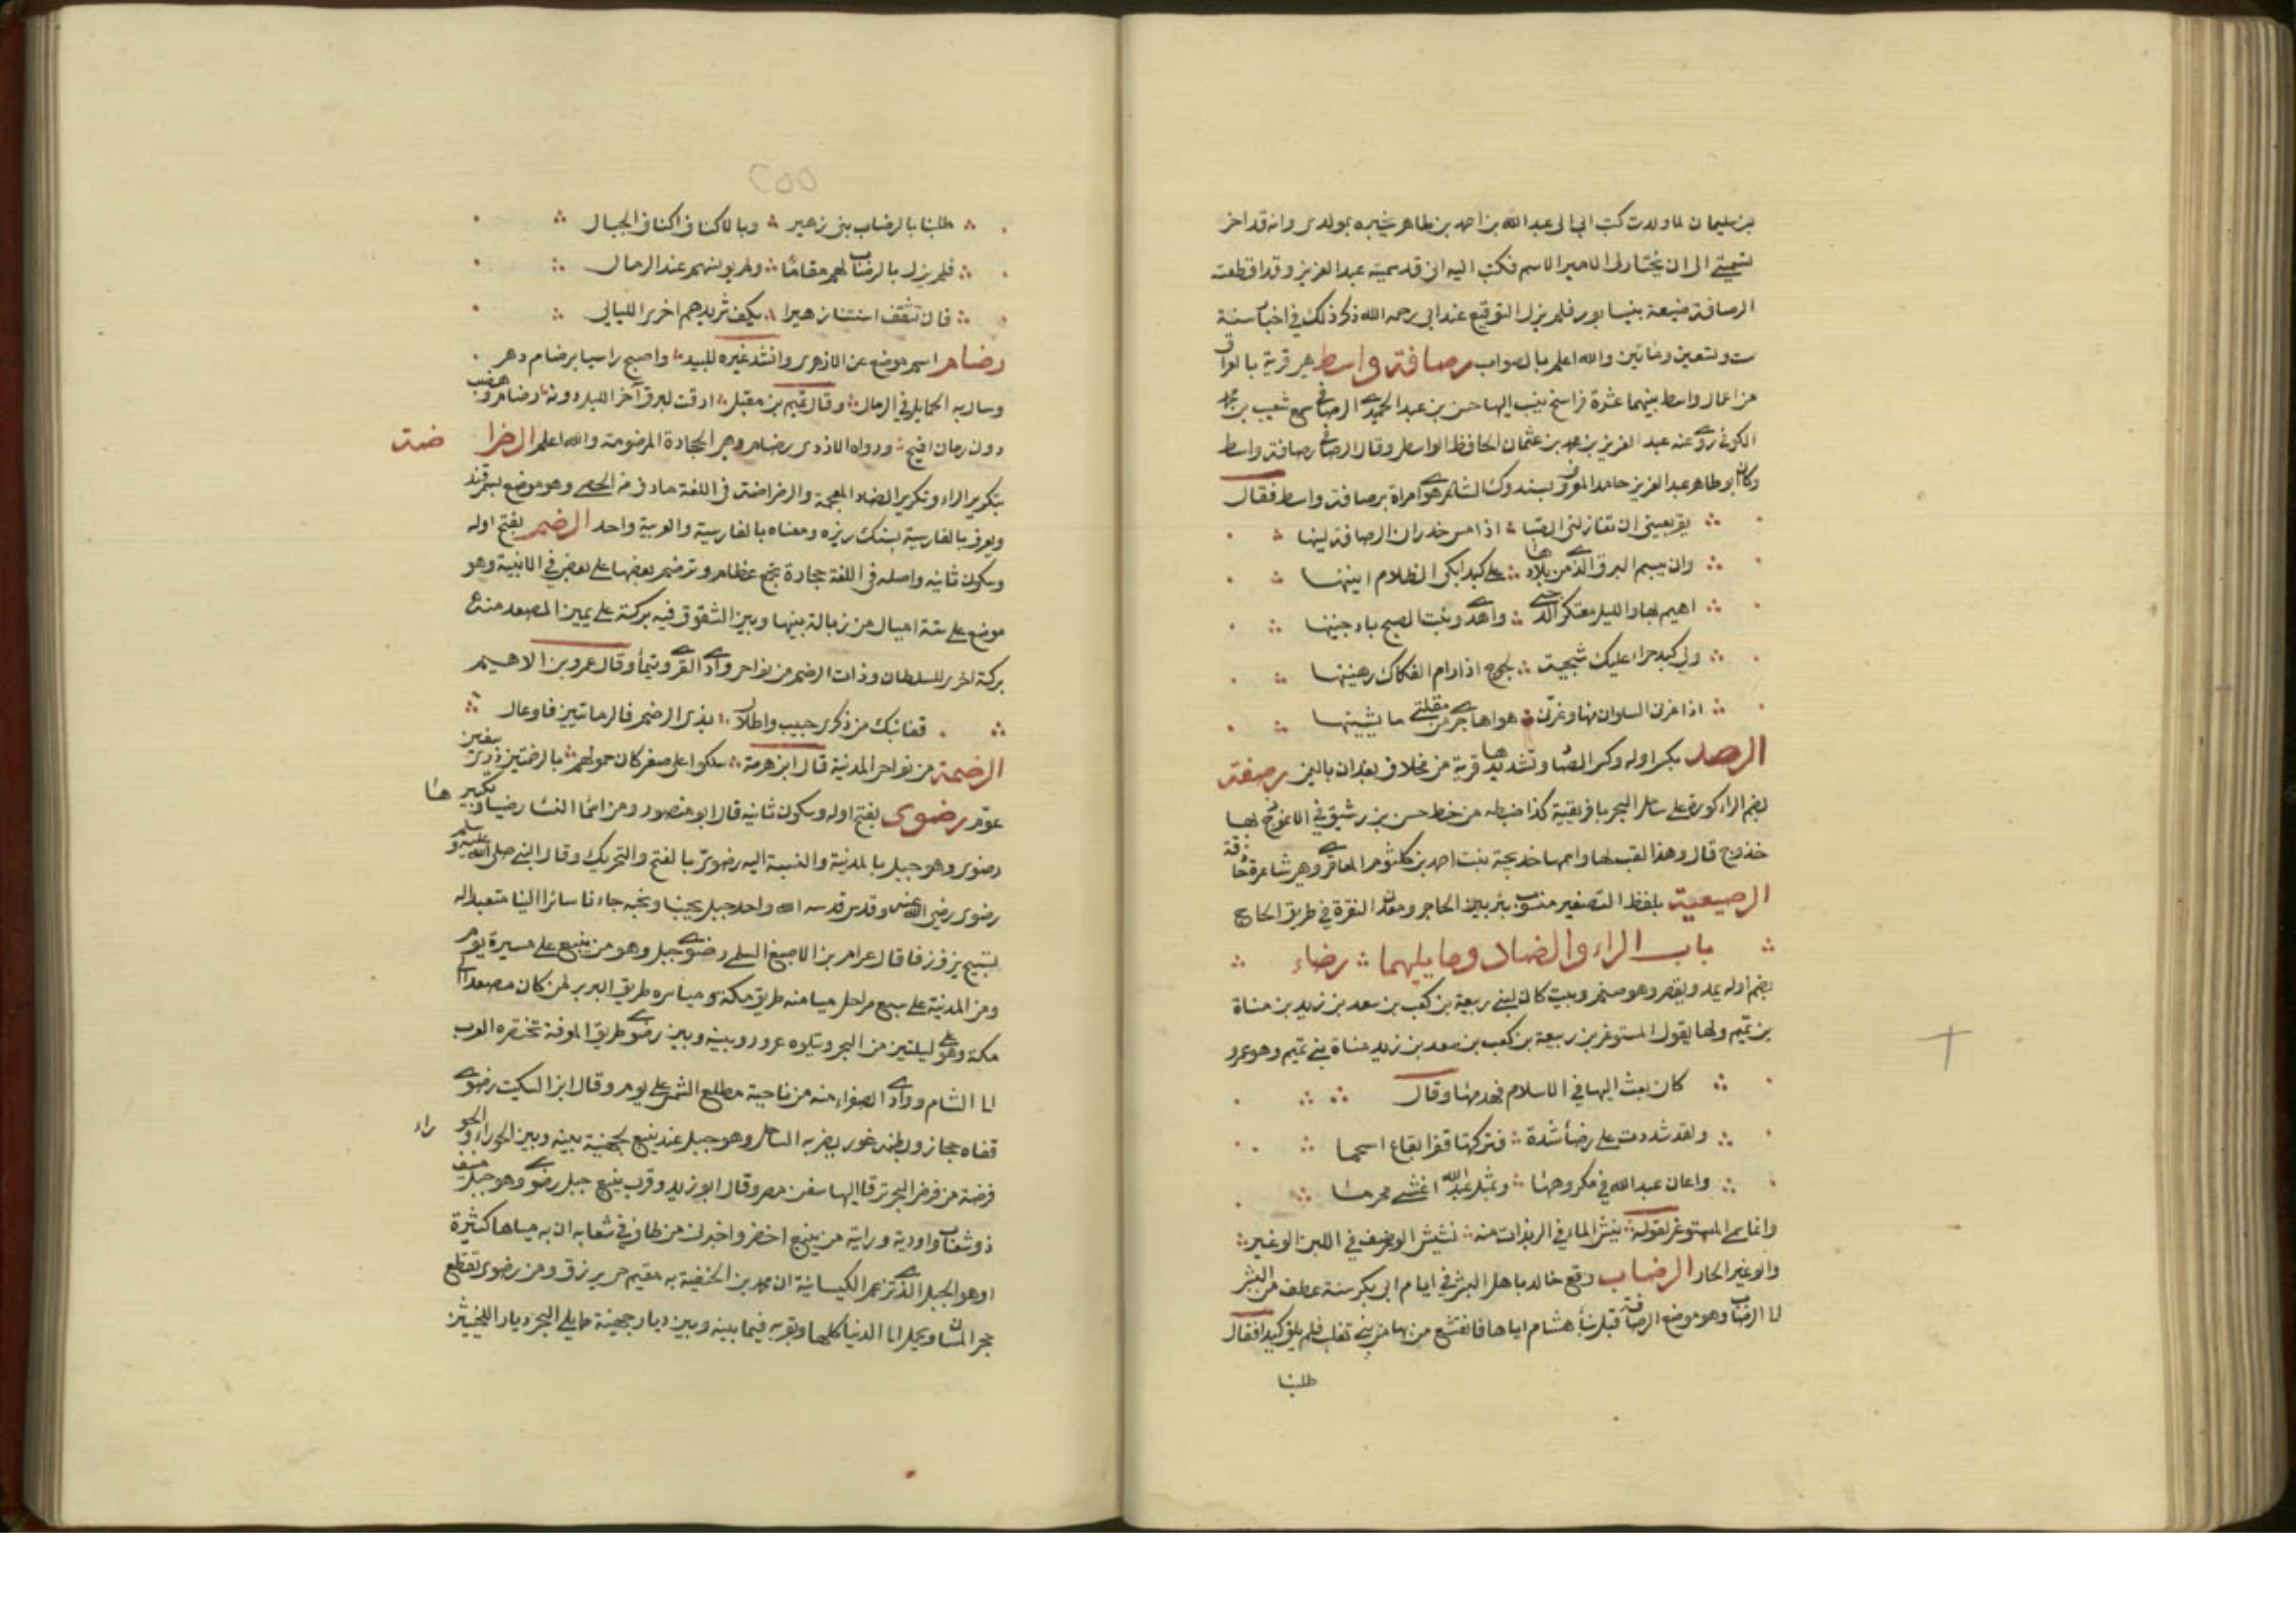 بن سليمان لما ولدت كتب ابي الى عبد الله بن احمد بن طاهر يخبره بمولدي وانه قد اخر
تسميتي الى ان يختار لي الامير الاسم فكتب اليه اني قد سميته عبد العزيز وقد اقطعته
الرصافة ضيعة بنيسابور فلم يزل التوقيع عند ابي رحمه الله ذكر ذلك في اخبار سنة
ست وتسعين ومائتين والله اعلم بالصواب رصافة واسط هي قرية بالعراق
من اعمال واسط بينهما عشرة فراسخ ينسب اليها حسن بن عبد الحميد الرصافي سمع شعيب بن محمد
الكوفي روى عنه عبد العزيز بن محمد بن عثمان الحافظ الواسطي وقال الرصافي رصافة واسط
وكان ابو طاهر عبد العزيز حامد المعروف بسندوك الشاعر هوى امراة برصافة واسط فقال
يقر بعيني ان تغازلني الصبا اذا مس جدران الرصافة لينها
وان يبسم البرق الذي من بلادها على كبد ابكى الظلام انينها
اهيم بها والليل معتكر الدجى واهدى وبنت الصبح باد جبينها
ولي كبد حراء عليك شجية لجوج اذا رام الفكاك رهينها
اذا عزني السلوان منها وغرني هواها جرى من مقلتي ما يشينها
الرصد بكسر اوله وكسر الصاد وتشديدها قرية من مخلاف بعدان باليمن رصفة
بضم الراء كورة على ساحل البحر بافريقية كذا ضبطه من خط حسن بن رشيق في الانموذج بها
خدوج قال وهذا لقب لها واسمها خديجة بنت احمد بن كلثوم المعافري وهي شاعرة حاذقة
الرصيعية بلفظ التصغير منسوب بئر بين الحاجر ومعدن النقرة في طريق الحاج
باب الراء والضاد وما يليهما رضاء
بضم اوله يمد ويقصر وهو صنم وبيت كان لبني ربيعة بن كعب بن سعد بن زيد بن مناة
بن تميم ولها يقول المستوغر بن ربيعة بن كعب بن سعد بن زيد مناة بني تميم وهو عمرو
كان بعث اليها في الاسلام فهدمها وقال
ولقد شددت على رضاء شدة فتركتها قفرا بقاع اسحما
واعان عبد الله في مكروهها وبمثل عبد الله اغشى محرما
وانما سمي المستوغر لقوله ينش الماء في الربلات منه نشيش الرضيف في اللبن الوغير
والوغير الحار الرضاب وقع خالد باهل البشر في ايام ابي بكر سنة عطف من البشر
لا الرضاب وهو موضع الرصافة قبل بناء هشام اياها فانقشع من بها من بني تغلب فلم يلق كيدا فقال
طلبنا
٢٥٥
طلبنا بالرضاب بني زهير وبالاكناف اكناف الجبال
فلم يزل بالرضاب لهم مقاما ولم يونسهم عند الرمال
فان تثقف اسنتنا زهيرا يكف شريدهم اخرى الليالي
رضام اسم موضع عن الازهري وانشد غيره للبيد واصبح راسيا برضام دهر
وسال به الحمايل في الرمال وقال تميم بن مقبل ارقت لبرق آخر الليل دونه رضام وهضب
دون رمان افيح ورواه الازدي رضام وهي الحجارة المرضومة والله اعلم الرضراضة
بتكرير الراء وتكرير الضاد المعجمة والرضراضة في اللغة ما دق من الحصى وهو موضع بسمرقند
ويعرف بالفارسية بسنك ريزه ومعناه بالفارسية والعربية واحد الرضم بفتح اوله
وسكون ثانيه واصله في اللغة حجارة تجمع عظام وترضم بعضها على بعض في الابنية وهو
موضع على ستة اميال من زبالة بينها وبين الشقوق فيه بركة على يمين المصعد منه
بركة اخرى للسلطان وذات الرضم من نواحي وادي القرى وتيماء وقال عمرو بن الاهيم
قفا نبك من ذكرى حبيب واطلال بذي الرضم فالرمانتين فاوعال
الرضمة من نواحي المدينة قال ابن هرمة سلكوا على صفر كان حمولهم بالرضمتين ذرى سفين
عوم رضوى بفتح اوله وسكون ثانيه قال ابو منصور ومن اسماء النساء رضيا وتكبيرها
رضوى وهو جبل بالمدينة والنسبة اليه رضوي بالفتح والتحريك وقال النبي صلى الله عليه وسلم
رضوى رضي الله عنه وقدس قدسه الله واحد جبل يحبنا ونحبه جاءنا سائرا الينا متعبدا له
تسبيح يزف زفا قال عرام بن الاصبغ السلمي رضوى جبل وهو من ينبع على مسيرة يوم
ومن المدينة على سبع مراحل ميامنه طريق مكة ومياسره طريق البريرا لمن كان مصعدا الى
مكة وهو على ليلتين من البحر ويتلوه عزور وبينه وبين رضوى طريق المعرفة تختصره العرب
الى الشام ووادي الصفراء منه من ناحية مطلع الشمس على يوم وقال ابن السكيت رضوى
قفاه حجاز وبطنه غور يضربه الساحل وهو جبل عند ينبع لجهينة بينه وبين الحوراء والحوراء
فرضة من فرض البحر ترفأ اليها سفن مصر وقال ابو زيد وقرب ينبع جبل رضوى وهو جبل منيف
ذو شعاب واودية ورايته من ينبع اخضر واخبرني من طاف في شعابه ان به مياها كثيرة
وهو الجبل الذي تزعم الكيسانية ان محمد بن الحنفية به مقيم حي يرزق ومن رضوى تقطع
حجر المسان ويحمل الى الدنيا كلها وبقربه فيما بينه وبين ديار جهينة مما يلي البحر ديار للحسنيين